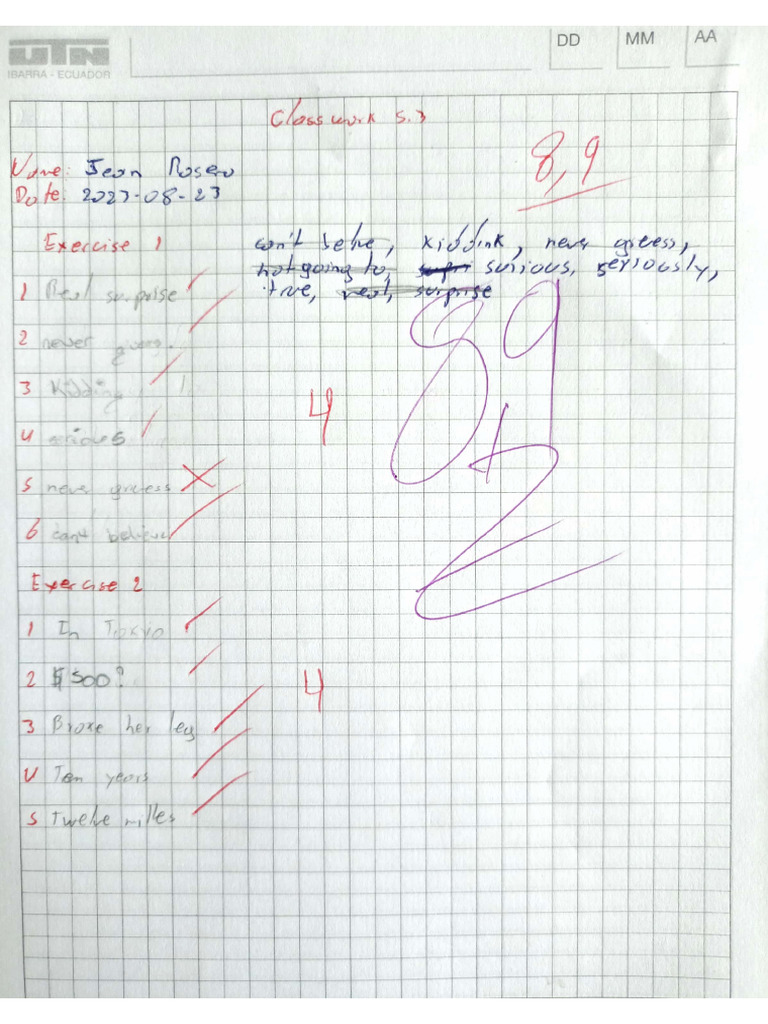 UTN
IBARRA - ECUADOR
DD MM AA
Classwork 5.3
8,9
Name: Jean Rosero
Date: 2023-08-23
Exercise 1
can't belive, kiddink, never greess,
not going to, surious, seriously,
true, real, surprise
1 Real surprise
2 never guess.
3 Kidding
4 serious
4
5 never greess
6 can't believe
89
Exercise 2
1 In Tokyo
2 $500?
4
3 Broke her leg
4 Ten years
5 Twelve milles